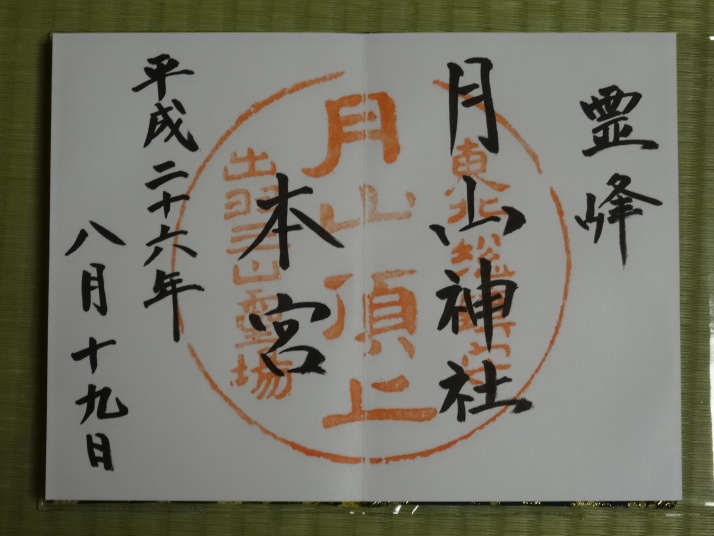 霊峰
月山神社
本宮
平成二十六年
八月十九日
東北総鎮守
月山頂上
出羽三山霊場